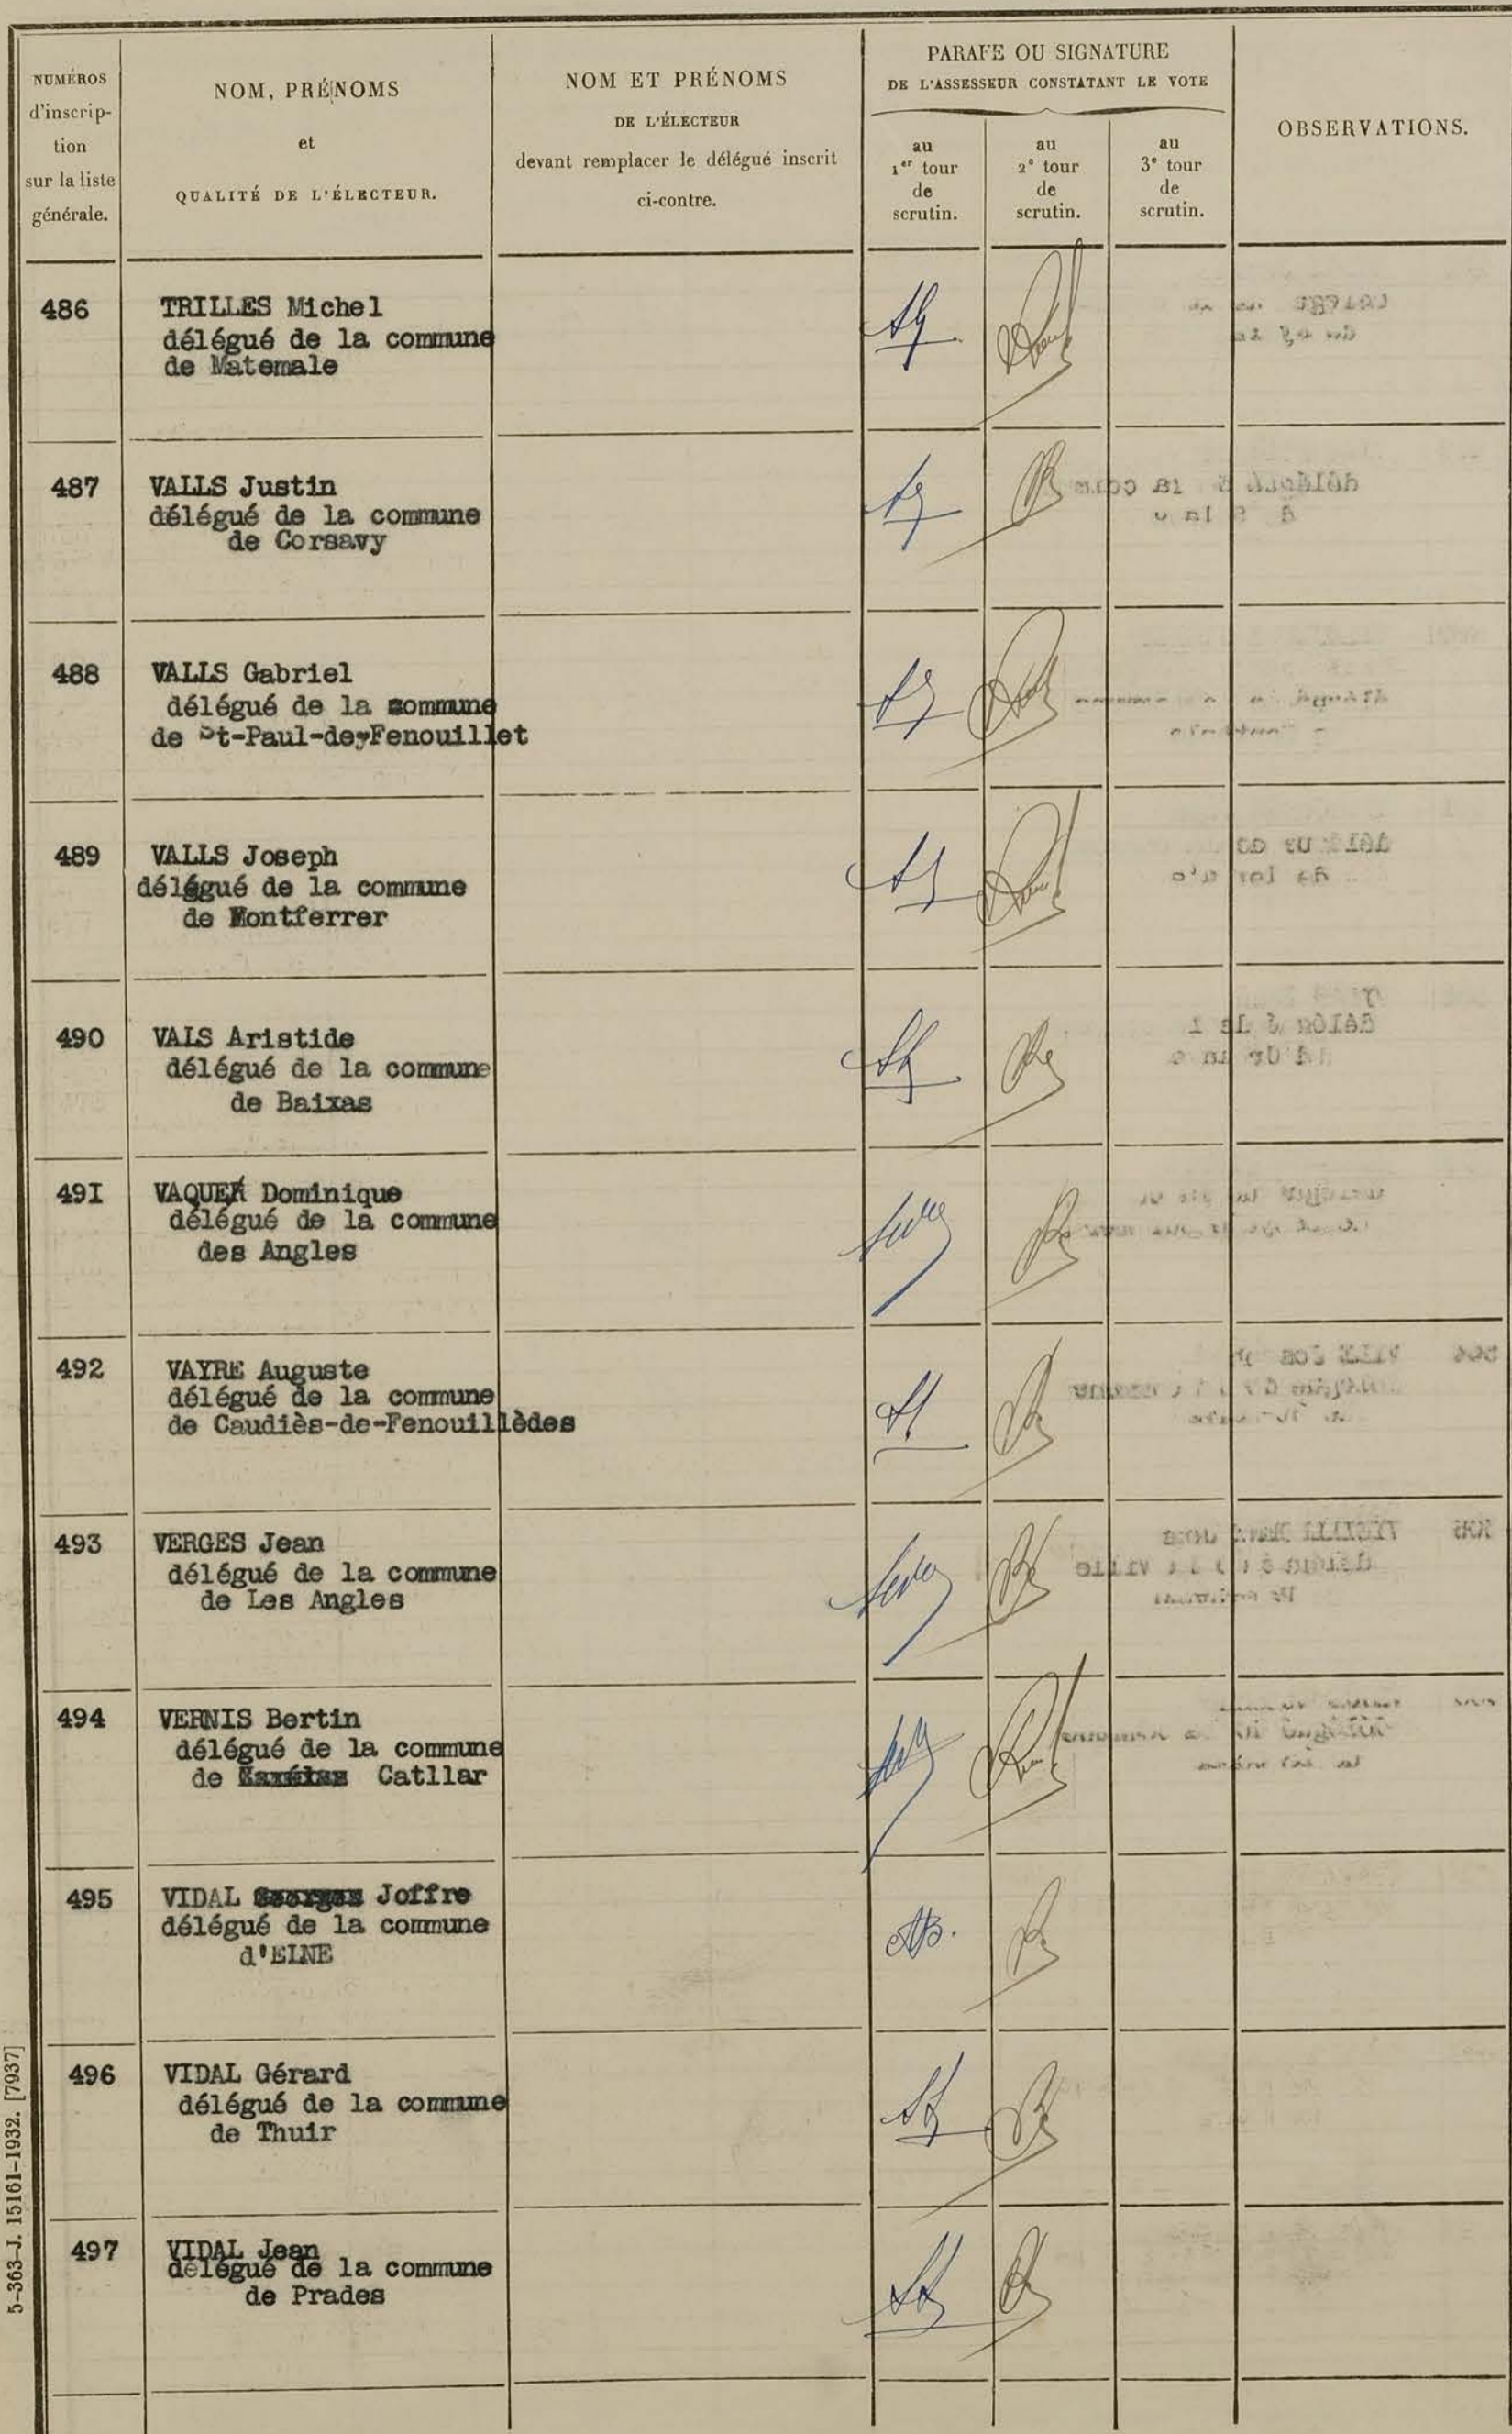 NUMÉROS
d'inscrip-
tion
sur la liste
générale.
NOM, PRÉNOMS
et
QUALITÉ DE L'ÉLECTEUR.
NOM ET PRÉNOMS
DE L'ÉLECTEUR
devant remplacer le délégué inscrit
ci-contre.
PARAFE OU SIGNATURE
DE L'ASSESSEUR CONSTATANT LE VOTE
au
1er tour
de
scrutin.
au
2e tour
de
scrutin.
au
3e tour
de
scrutin.
OBSERVATIONS.
486 TRILLES Michel
délégué de la commune
de Matemale
487 VALLS Justin
délégué de la commune
de Corsavy
488 VALLS Gabriel
délégué de la commune
de St-Paul-de-Fenouillet
489 VALLS Joseph
délégué de la commune
de Montferrer
490 VALS Aristide
délégué de la commune
de Baixas
49I VAQUER Dominique
délégué de la commune
des Angles
492 VAYRE Auguste
délégué de la commune
de Caudiès-de-Fenouillèdes
493 VERGES Jean
délégué de la commune
de Les Angles
494 VERNIS Bertin
délégué de la commune
de Catllar
495 VIDAL Joffre
délégué de la commune
d'ELNE
496 VIDAL Gérard
délégué de la commune
de Thuir
497 VIDAL Jean
délégué de la commune
de Prades
5-363-J. 15161-1932. [7937]